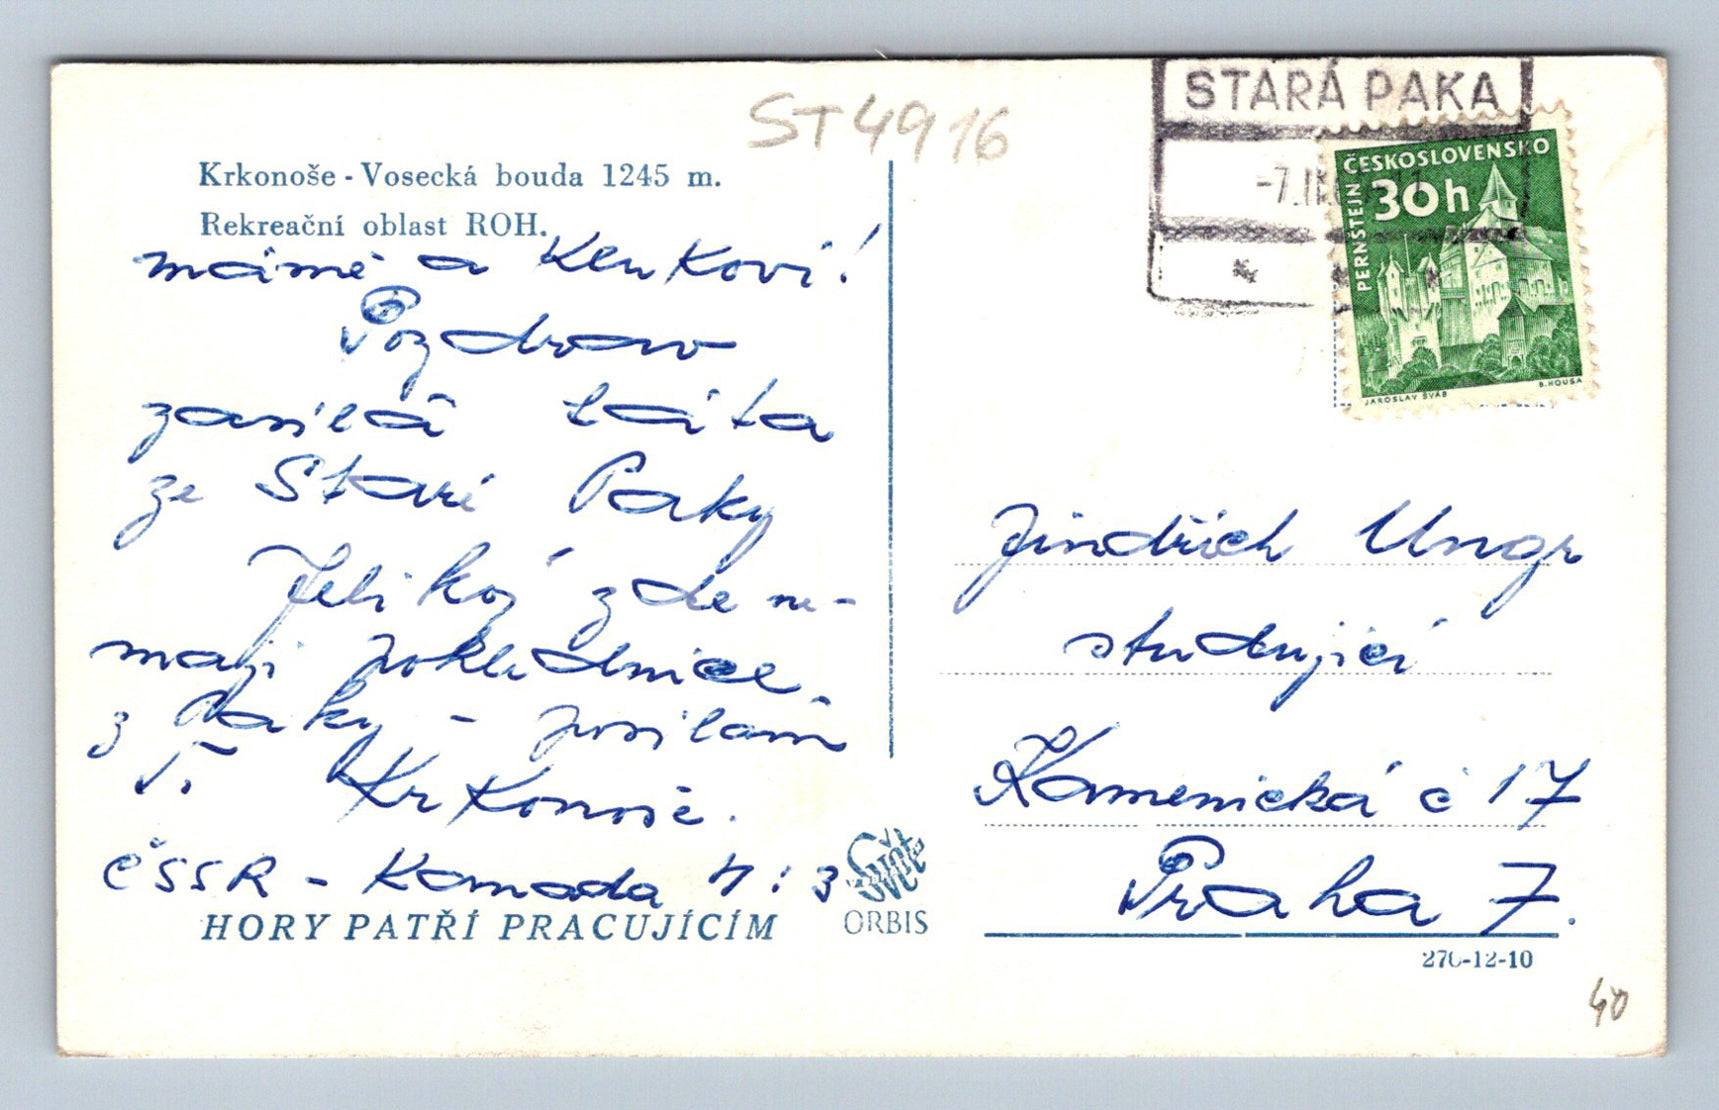 ST4916
Krkonoše - Vosecká bouda 1245 m.
Rekreační oblast ROH.
mámě a Klukovi!
Pozdrav
zasílá táta
ze Staré Paky
Jelikož zde ne-
mají pohlednice
z Paky - posílám
T. Krkonoše.
ČSSR - Kanada 4:3
HORY PATŘÍ PRACUJÍCÍM
Svět
ORBIS
STARÁ PAKA
-7.II
ČESKOSLOVENSKO
30h
PERNŠTEJN
JAROSLAV ŠVÁB
B. HOUSA
Jindřich Ungr
studující
Kamenická č 17
Praha 7.
276-12-10
40